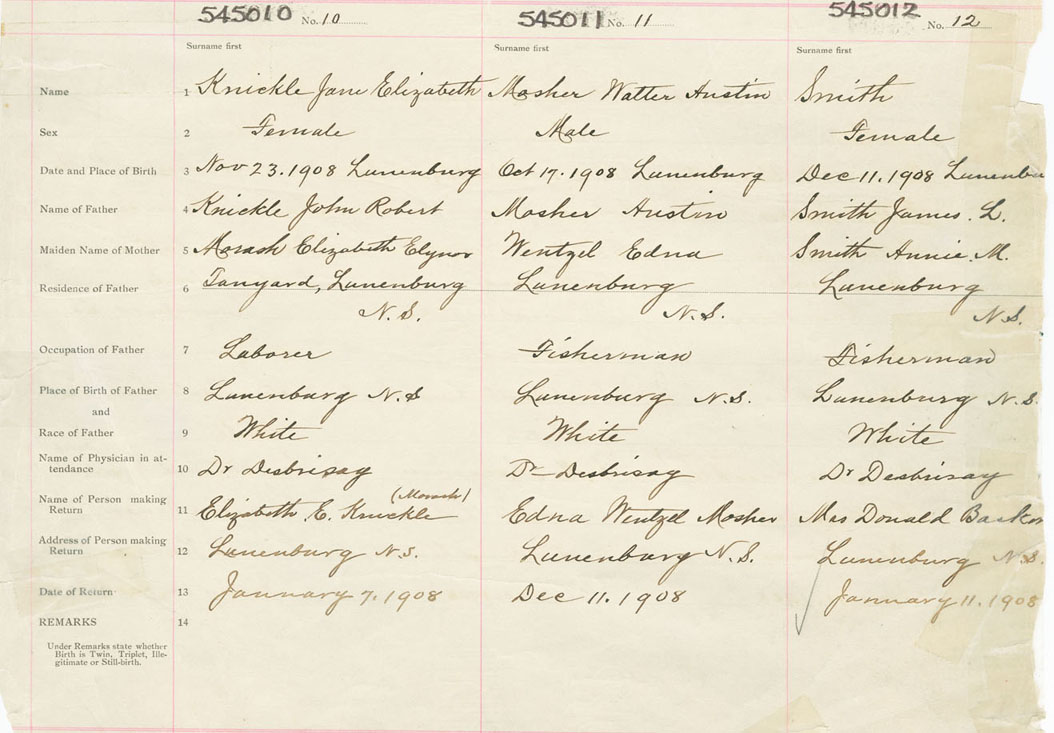 545010 No. 10 545011 No. 11 545012 No. 12
Surname first Surname first Surname first
Name 1 Knickle Jane Elizabeth Mosher Walter Austin Smith
Sex 2 Female Male Female
Date and Place of Birth 3 Nov 23. 1908 Lunenburg Oct 17. 1908 Lunenburg Dec 11. 1908
Name of Father 4 Knickle John Robert Mosher Austin Smith James. L.
Maiden Name of Mother 5 Morash Elizabeth Elynor Wentzel Edna Smith Annie. M.
Residence of Father 6 Tanyard, Lunenburg Lunenburg Lunenburg
N.S. N.S. N.S.
Occupation of Father 7 Laborer Fisherman Fisherman
Place of Birth of Father 8 Lunenburg N.S Lunenburg N.S. Lunenburg N.S.
and
Race of Father 9 White White White
Name of Physician in at-
tendance 10 Dr Desbrisay Dr Desbrisay Dr Desbrisay
Name of Person making (Morash)
Return 11 Elizabeth. E. Knickle Edna Wentzel Mosher Mrs Donald
Address of Person making
Return 12 Lunenburg N.S. Lunenburg N.S. Lunenburg N.S.
Date of Return 13 January 7. 1908 Dec 11. 1908 January 11. 1908
REMARKS 14
Under Remarks state whether
Birth is Twin, Triplet, Ille-
gitimate or Still-birth.